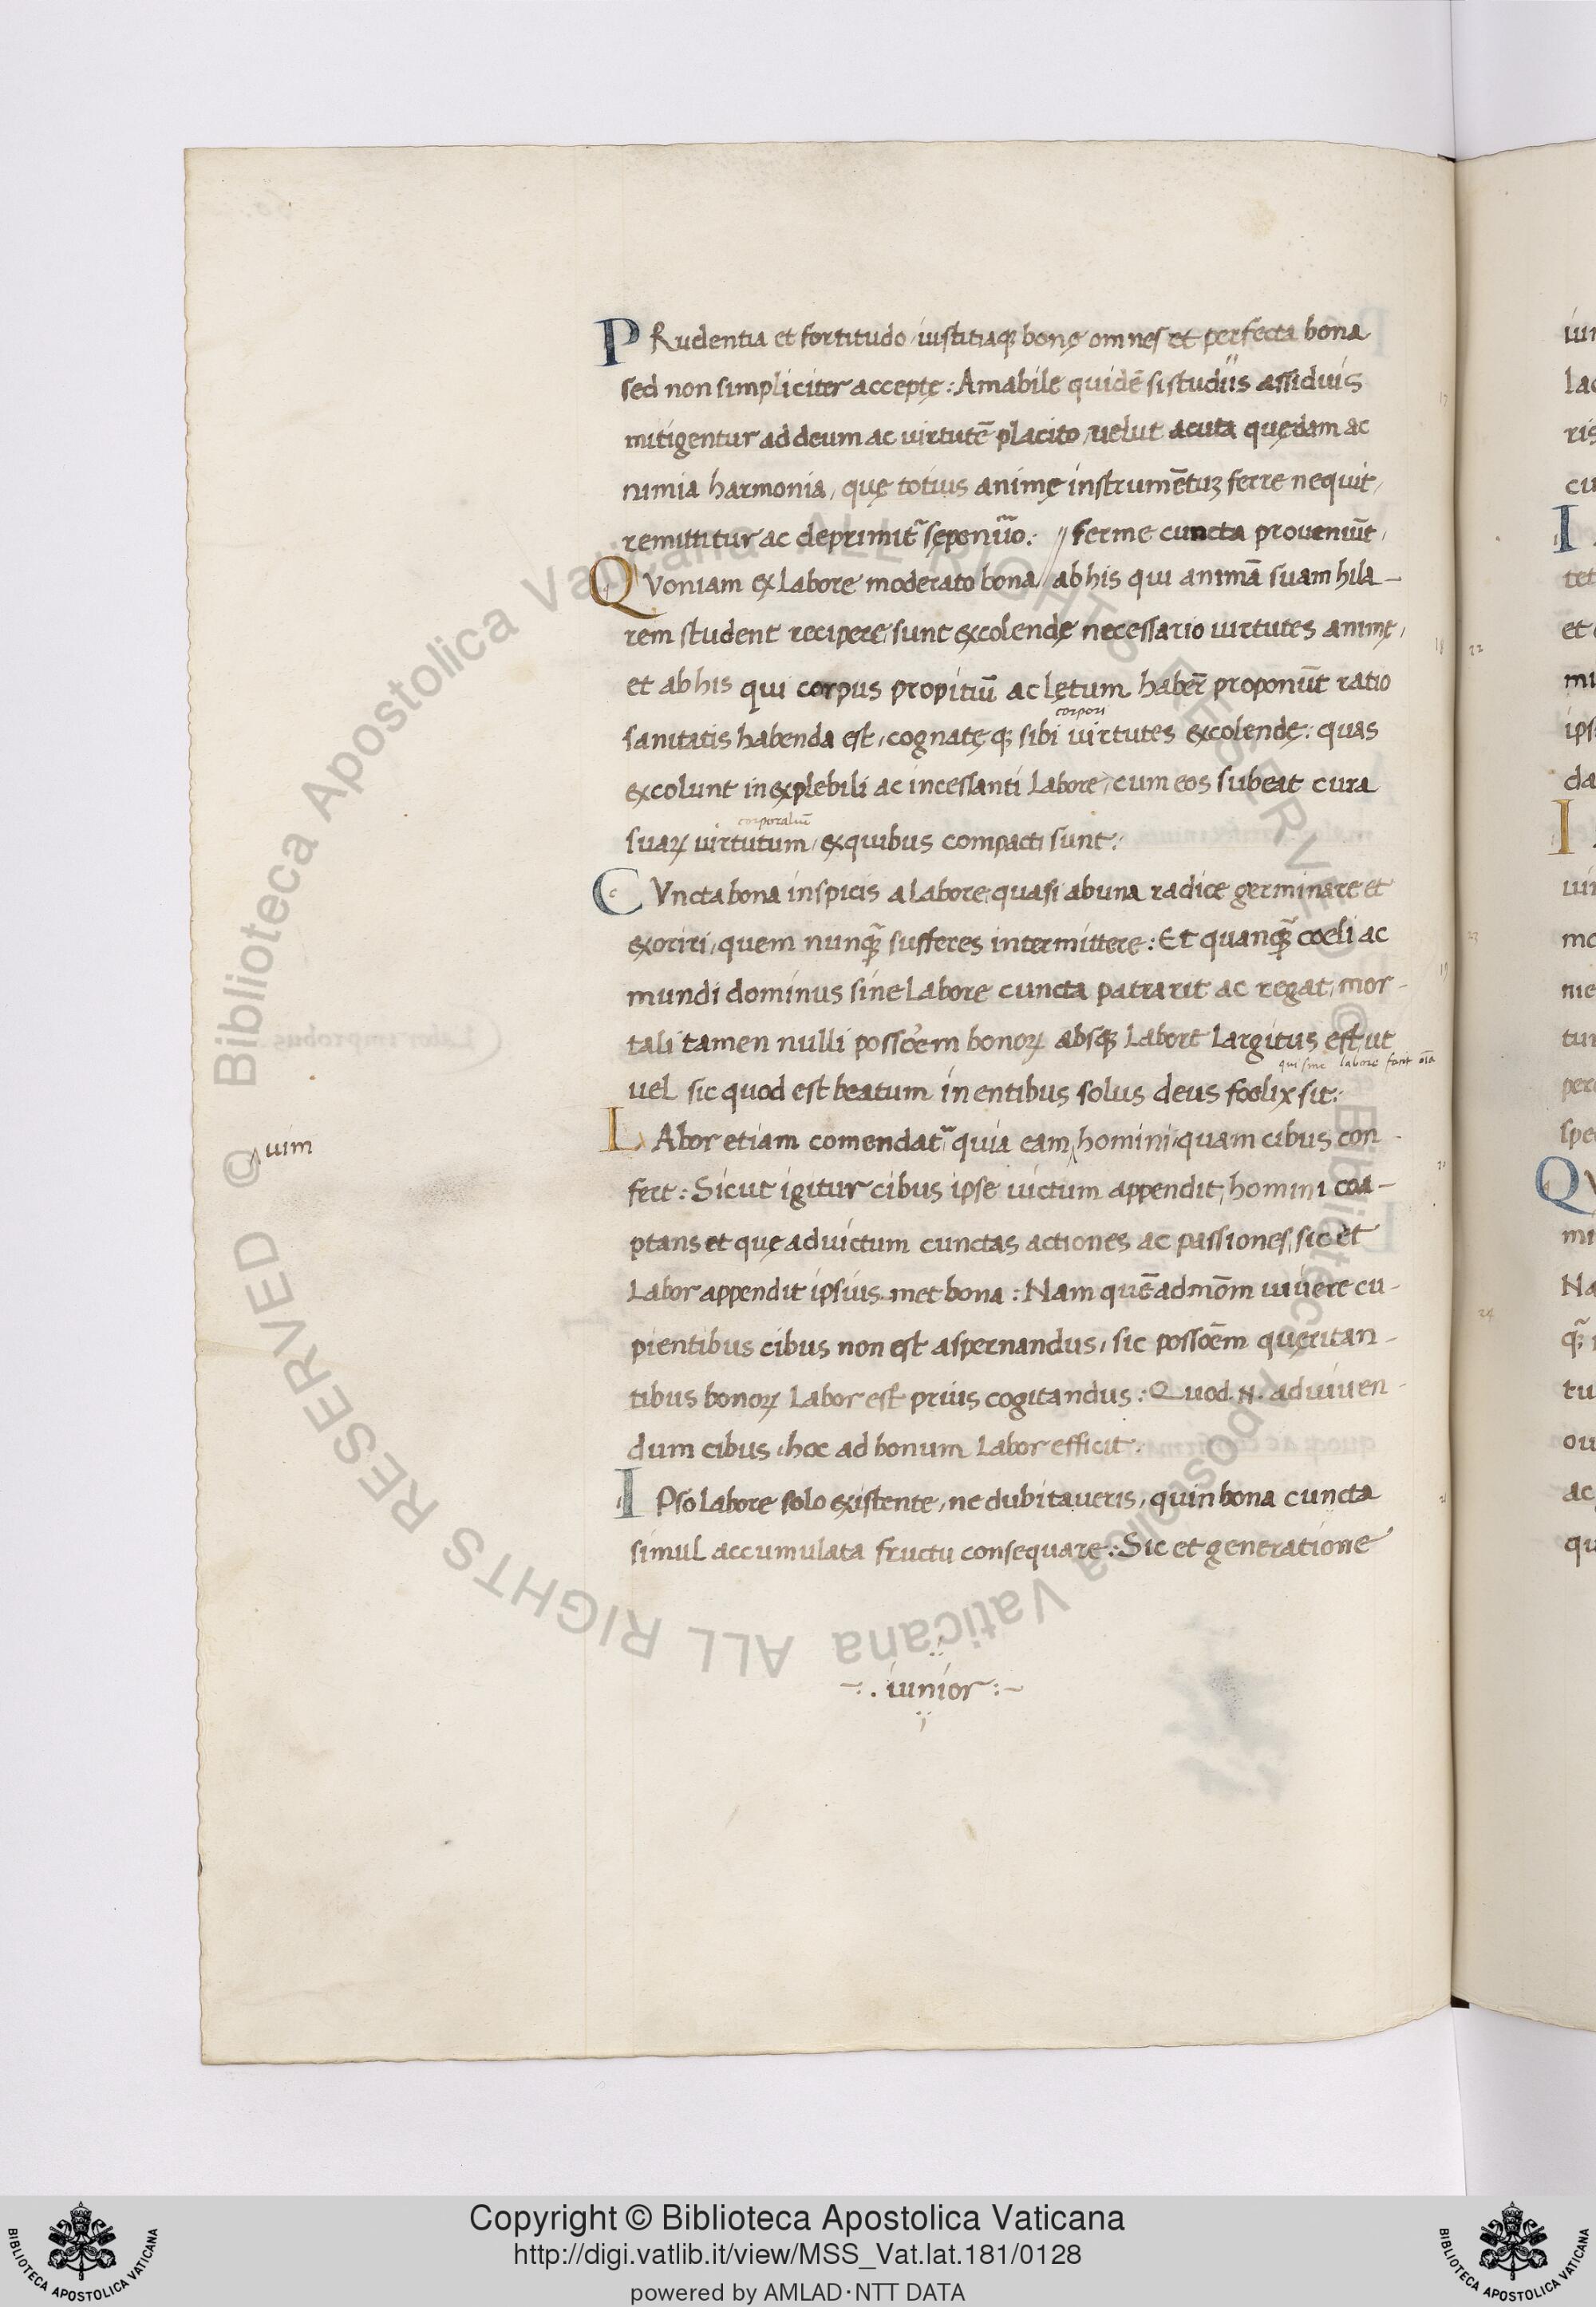 PRudentia et fortitudo, iustitiaqꝫ bonę omnes et perfecta bona
sed non simpliciter acceptę: Amabile quidē si studiis assiduis
mitigentur ad deum ac virtutē placito, uelut acuta quędam ac
nimia harmonia, quę totius animę instrumētuꝫ ferre nequit,
remittitur ac deprimitᷣ sępenūo: // ferme cuncta proueniūt,
QVoniam ex labore moderato bona // ab his qui animā suam hila-
rem student recipere, sunt excolendę necessario uirtutes animę,
et ab his qui corpus propitiū ac lętum haber̄ proponūt ratio
corpori
sanitatis habenda est, cognatęqꝫ sibi uirtutes excolendę: quas
excolunt inexplebili ac incessanti labore, cum eos subeat cura
corporaliū
suaꝝ uirtutum, ex quibus compacti sunt:
CVncta bona inspicis a labore, quasi ab una radice germinare et
exoriri, quem nunqꝫ̄ sufferes intermittere: Et quanqꝫ̄ coeli ac
mundi dominus sine labore cuncta patrarit ac regat, mor-
tali tamen nulli possōem bonoꝝ absqꝫ labore largitus est, ut
qui sine labore facit oīa
uel sic quod est beatum in entibus solus deus foelix sit:
LAbor etiam comendatᷣ quia eam ‸ homini, quam cibus con-
‸ uim
fert: Sicut igitur cibus ipse uictum appendit, homini coa-
ptans et quę ad uictum cunctas actiones ac passiones, sic et
labor appendit ipsius met bona: Nam quēadmōm uiuere cu-
pientibus cibus non est aspernandus, sic possōem quęritan-
tibus bonoꝝ labor est prius cogitandus: Quod .N. ad uiuen-
dum cibus, hoc ad bonum labor efficit:
IPso labore solo existente, ne dubitaueris, quin bona cuncta
simul accumulata fructu consequare: Sic et generatione
-:. iunior:-
Copyright © Biblioteca Apostolica Vaticana
http://digi.vatlib.it/view/MSS_Vat.lat.181/0128
powered by AMLAD·NTT DATA
BIBLIOTECA APOSTOLICA VATICANA
BIBLIOTECA APOSTOLICA VATICANA
© Biblioteca Apostolica Vaticana ALL RIGHTS RESERVED © Biblioteca Apostolica Vaticana ALL RIGHTS RESERVED